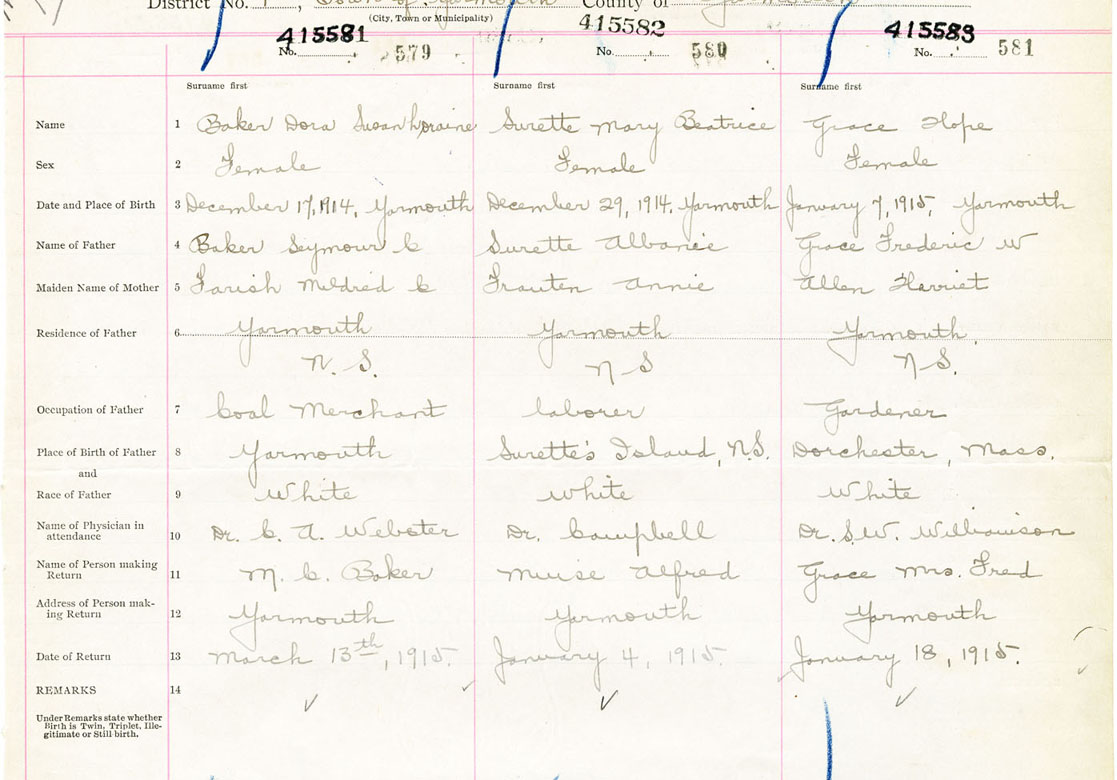 District No. 1, Town of Yarmouth County of Yarmouth
(City, Town or Municipality)
415581 415582 415583
No. 579 No. 580 No. 581
Surname first Surname first Surname first
Name 1 Baker Dora Susan Loraine Surette Mary Beatrice Grace Hope
Sex 2 Female Female Female
Date and Place of Birth 3 December 17, 1914, Yarmouth December 29, 1914, Yarmouth January 7, 1915, Yarmouth
Name of Father 4 Baker Seymour C Surette Albanie Grace Frederic W
Maiden Name of Mother 5 Farish Mildred C Frauten Annie Allen Harriet
Residence of Father 6 Yarmouth Yarmouth Yarmouth,
N. S. N S N S.
Occupation of Father 7 Coal Merchant laborer Gardener
Place of Birth of Father 8 Yarmouth Surette's Island, N.S. Dorchester, Mass.
and
Race of Father 9 White White White
Name of Physician in
attendance 10 Dr. C. A. Webster Dr. Campbell Dr. S. W. Williamson
Name of Person making
Return 11 M. C. Baker Muise Alfred Grace Mrs. Fred
Address of Person mak-
ing Return 12 Yarmouth Yarmouth Yarmouth
Date of Return 13 March 13th, 1915. January 4, 1915. January 18, 1915.
REMARKS 14
Under Remarks state whether
Birth is Twin, Triplet, Ille-
gitimate or Still birth.